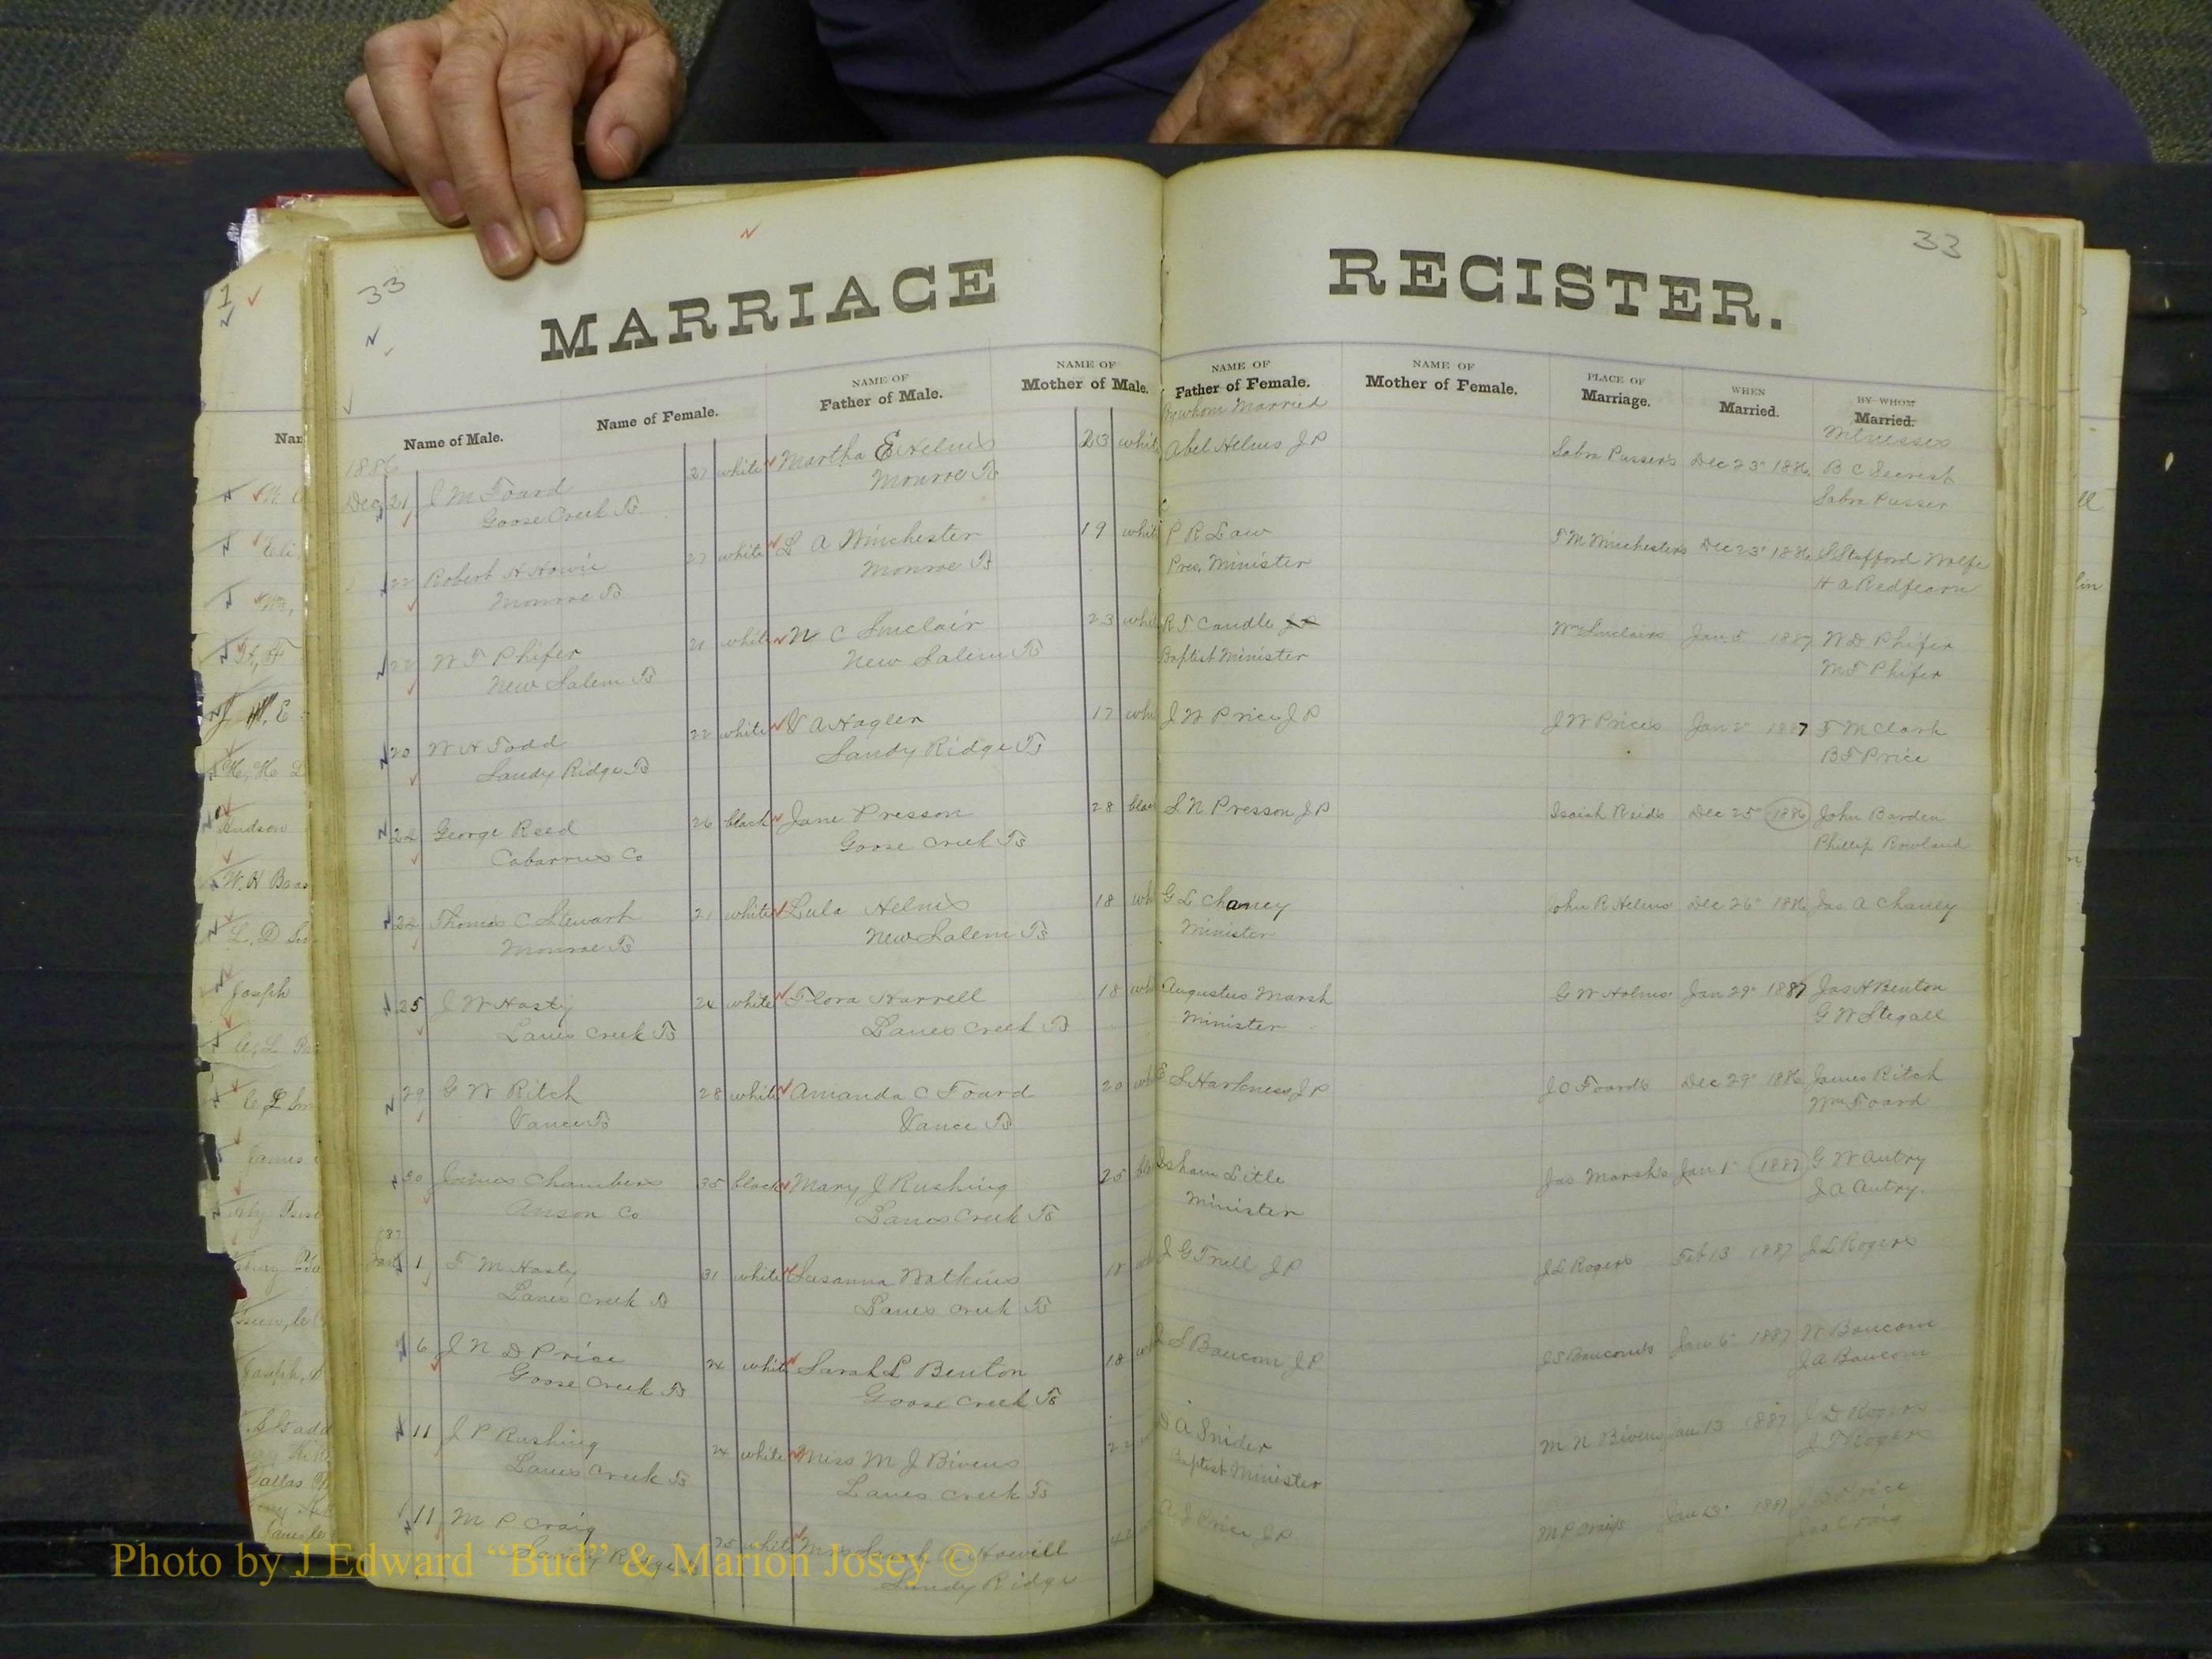 33
33
MARRIAGE REGISTER.
Name of Male.
Name of Female.
NAME OF
Father of Male.
NAME OF
Mother of Male.
NAME OF
Father of Female.
NAME OF
Mother of Female.
PLACE OF
Marriage.
WHEN
Married.
BY WHOM
Married.
By whom Married
Witnesses
1886
Dec 21 J M Foard 27 white Martha E Helms 23 white Abel Helms J P Sabra Pusser's Dec 23 1886 B C Secrest
Goose Creek Ts Monroe Ts Sabra Pusser
22 Robert H Howie 27 white L A Winchester 19 white P R Law T M Winchesters Dec 23 1886 S Stafford Wolfe
Monroe Ts Monroe Ts Pres. Minister H A Redfearn
22 W F Phifer 21 white N C Sinclair 23 whi R F Caudle J P Wm Sinclairs Jan 5 1887 W D Phifer
New Salem Ts New Salem Ts Baptist Minister M F Phifer
20 W H Todd 22 white V A Hagler 17 whi J W Price J P J W Prices Jan 2 1887 F M Clark
Sandy Ridge Ts Sandy Ridge Ts B F Price
22 George Reed 26 black Jane Presson 28 blac S N Presson J P Isaiah Reids Dec 25 1886 John Barden
Cabarrus Co Goose Creek Ts Phillip Rowland
22 Thomas C Stewart 21 white Lula Helms 18 wh G L Chaney John R Helms Dec 26 1886 Jas A Chaney
Monroe Ts New Salem Ts Minister
25 J W Hasty 24 white Flora Harrell 18 wh Augustus Marsh G W Holms Jan 29 1887 Jas H Benton
Lanes Creek Ts Lanes Creek Ts Minister G W Stegall
29 G W Ritch 28 white Amanda C Foard 20 wh E S Harkness J P J C Foards Dec 29 1886 James Ritch
Vance Ts Vance Ts Wm Foard
30 James Chambers 35 black Mary J Rushing 25 bl Isham Litle Jas Marsh's Jan 1 1887 G W Autry
Anson Co Lanes Creek Ts Minister J A Autry.
Jany 1 F M Hasty 31 white Susanna Watkins 18 J G Trull J P J L Rogers Feb 13 1887 J L Rogers
Lanes Creek Ts Lanes Creek Ts
6 J N D Price 24 white Sarah L Benton 18 J S Baucom J P J S Baucom's Jan 6 1887 W Baucom
Goose Creek Ts Goose Creek Ts J A Baucom
11 J P Rushing 24 white Miss M J Bivens 22 D A Snider M N Bivens Jan 13 1887 J D Rogers
Lanes Creek Ts Lanes Creek Ts Baptist Minister J F Rogers
11 M P Craig 25 white Howill A J Price J P M P Craigs Jan 13 1887 Price
Sandy Ridge Sandy Ridge Jas Craig
Photo by J Edward “Bud” & Marion Josey ©